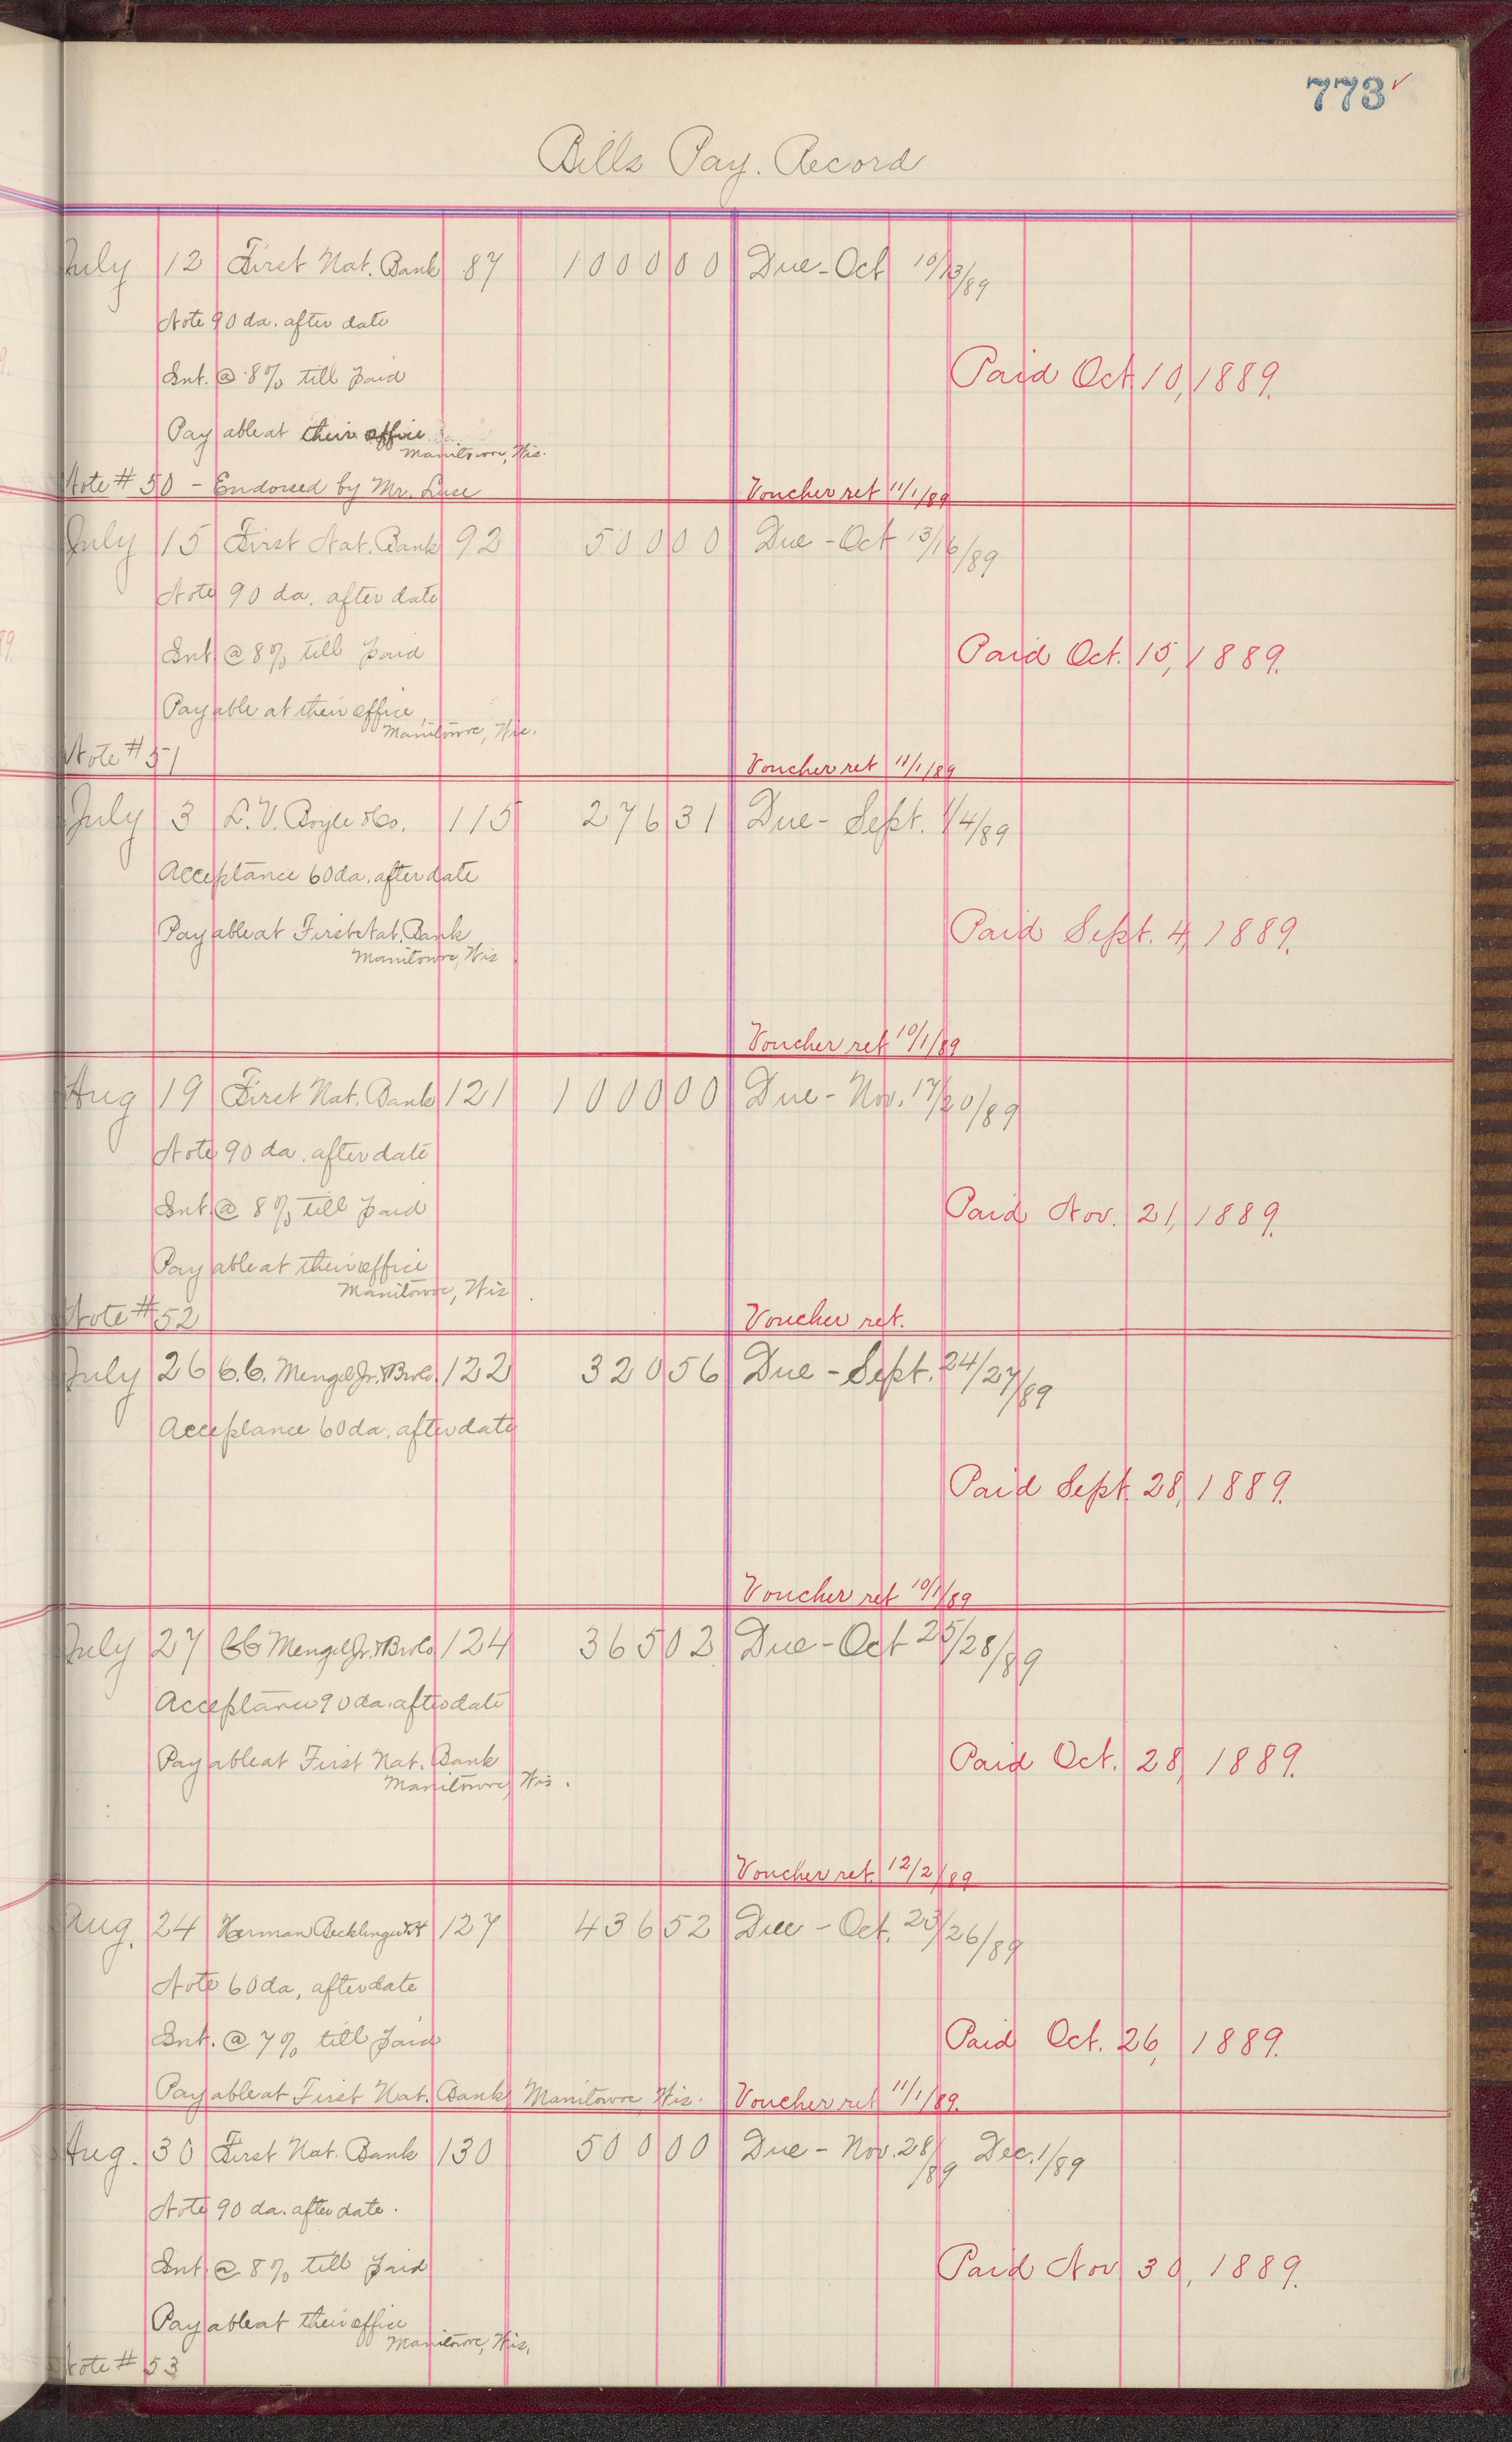 773
Bills Pay. Record
July 12 First Nat. Bank 87 1000 00 Due - Oct 10/13/89
Note 90 da. after date
Int. @ 8% till paid Paid Oct 10, 1889.
Payable at their office
Manitowoc, Wis.
Note # 50 - Endorsed by Mr. Luse Voucher ret 11/1/89
July 15 First Nat. Bank 92 500 00 Due - Oct 13/16/89
Note 90 da. after date
Int @ 8% till paid Paid Oct. 15, 1889.
Payable at their office
Manitowoc, Wis.
Note # 51 Voucher ret 11/1/89
July 3 L. V. Boyle & Co. 115 276 31 Due - Sept. 1/4/89
Acceptance 60 da. after date
Payable at First Nat. Bank Paid Sept. 4, 1889.
Manitowoc, Wis
Voucher ret 10/1/89
Aug 19 First Nat. Bank 121 1000 00 Due - Nov. 17/20/89
Note 90 da. after date
Int @ 8% till paid Paid Nov. 21, 1889.
Payable at their office
Manitowoc, Wis
Note # 52 Voucher ret.
July 26 C.C. Mengel Jr. & Bro Co. 122 320 56 Due - Sept. 24/27/89
Acceptance 60 da. after date
Paid Sept. 28, 1889.
Voucher ret 10/1/89
July 27 CC Mengel Jr. & Bro Co 124 365 02 Due - Oct 25/28/89
Acceptance 90 da. after date
Payable at First Nat. Bank Paid Oct. 28, 1889.
Manitowoc, Wis.
Voucher ret. 12/2/89
Aug. 24 Herman 127 436 52 Due - Oct. 23/26/89
Note 60 da, after date
Int. @ 7% till paid Paid Oct. 26, 1889.
Payable at First Nat. Bank Manitowoc Wis. Voucher ret 11/1/89.
Aug. 30 First Nat. Bank 130 500 00 Due - Nov. 28/89 Dec. 1/89
Note 90 da. after date.
Int @ 8% till paid Paid Nov 30, 1889.
Payable at their office
Manitowoc, Wis.
Note # 53